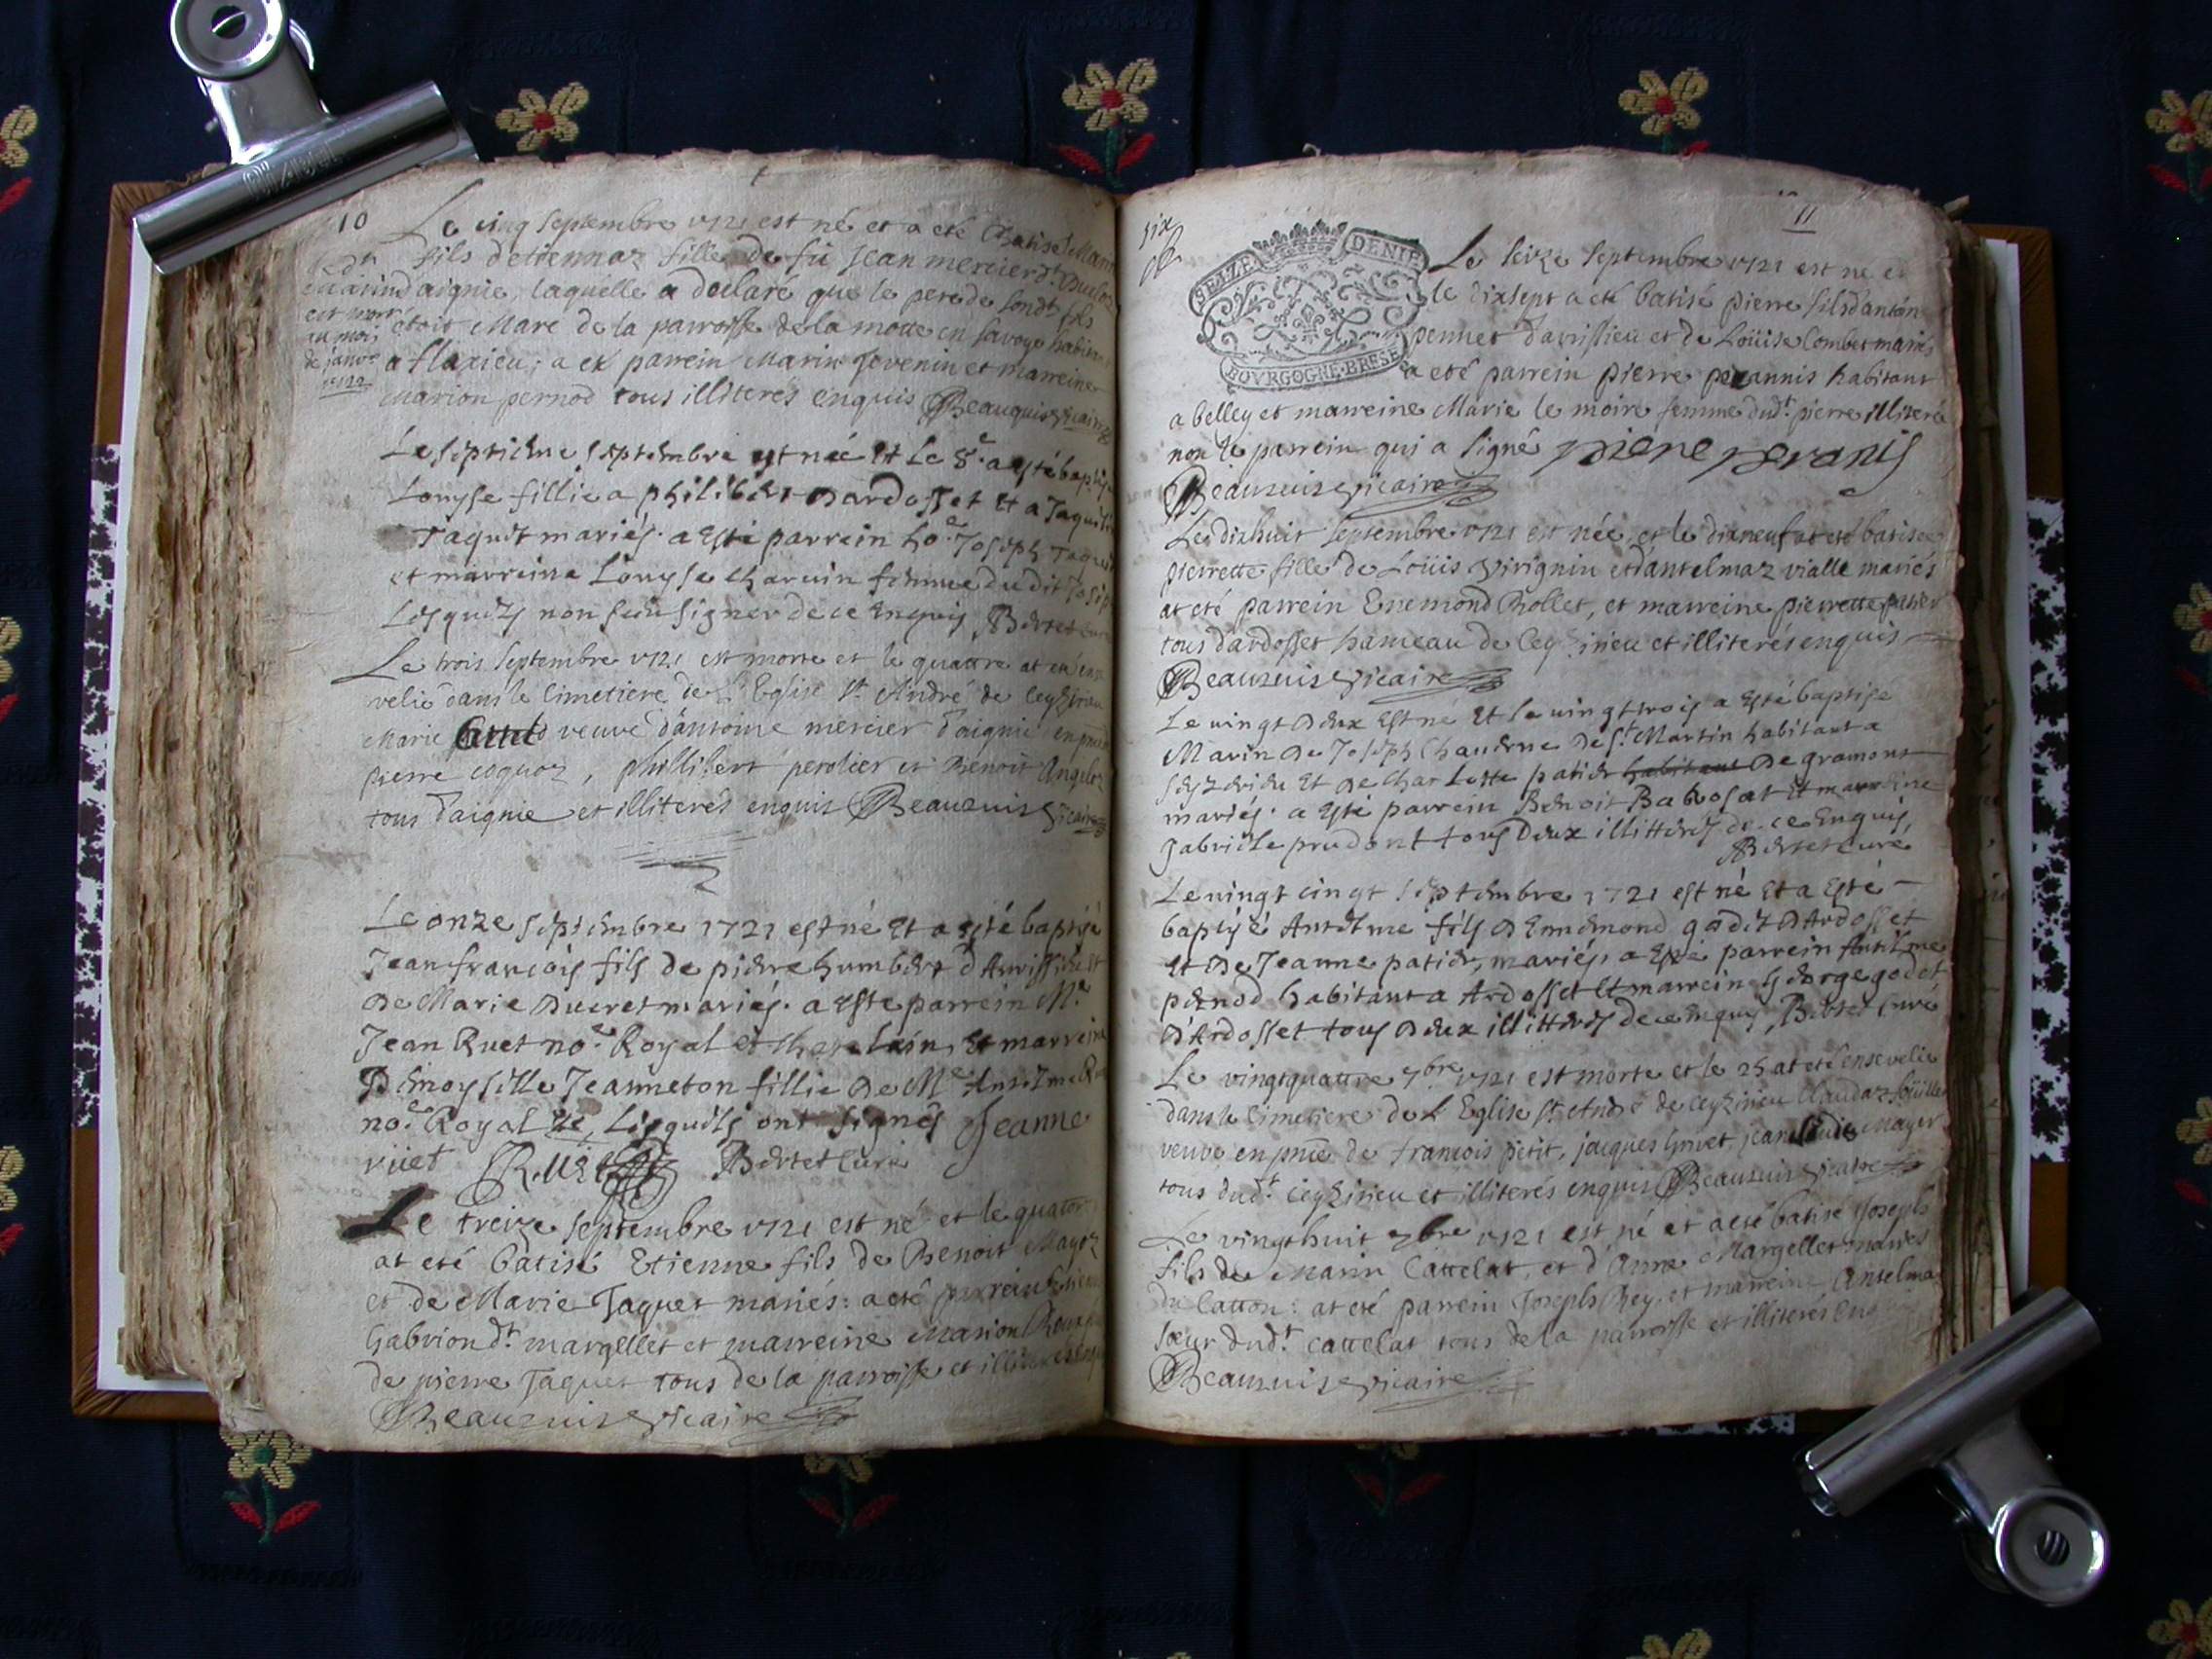 10
Le cinq septembre 1721 est né et a eté Batisé
fils detiennaz fille de fu Jean mercier
daignie, laquelle a declaré que le pere de sondt fils
étoit Marc de la parroisse de la motte en savoye habitant
a flaxieu; a eté parrein Marin Jovenin et marreine
Marion pernod tous illiterés enquis Beauzuis vicaire
est mort
au mois
de janvr
1722
Le septieme septembre est née et Le 8e a esté baptisée
Louyse fillie a philibert Dardosset et a
Taquet mariés. a esté parrein ho.e Joseph Taquet
et marreine Louyse Charvin femme du dit Joseph
Lesquels non sceu signer de ce Enquis Bertet curé
Le trois septembre 1721 est morte et le quattre at eté ense
velie dans le cimetiere de L'Eglise St. André de Ceyzirieu
Marie veuve d'antoine mercier daignie en pnce
pierre coquoz, phillibert perolier et Benoit
tous daignie et illiterés enquis Beauzuis vicaire
Le onze septembre 1721 est né Et a esté baptisé
Jean françois fils de pierre humbert d'Avrissieu et
de Marie Ducret mariés. a Esté parrein Me
Jean Ruet no.e Royal et Chatelain, Et marreine
Demoyselle Jeanneton fillie de Me Anselme Ruet
no.e Royal Lesquels ont signés Jeanne
rüet Ruet Bertet Curé
Le treize septembre 1721 est né et le quator
at eté batisé Etienne fils de Benoit Mayoz
et de Marie Taquet mariés: a eté parrein
Gabrion dt. margellet et marreine Marion
de pierre Taquet tous de la parroisse et illiterés
Beauzuis vicaire
six
11
SEAZE DENIE
BOVRGOGNE·BRESE
Le seize septembre 1721 est né et
le dixsept a eté batisé pierre fils d'anton
pennet d'avrissieu et de Loüise Combet mariés
a eté parrein pierre perannis habitant
a belley et marreine Marie le moire femme dudt. pierre illiterée
non le parrein qui a signé pierre peranis
Beauzuis vicaire
Le dixhuit septembre 1721 est née et le dixneuf at eté batisée
pierrette fille de Loüis Virignin et d'antelmaz vialle mariés
at eté parrein Enemond Rollet, et marreine pierrette patier
tous d'ardosset hameau de Ceyzirieu et illiterés enquis
Beauzuis vicaire
Le vingt deux Est né Et le vingt trois a Esté baptisé
Marin de Joseph Chauderne de St. Martin habitant a
Seyzerieu Et de Charlotte patier habitant de gramont
mariés. a Esté parrein Benoit Babosat Et marreine
gabriele prudont tous Deux illitterés de ce Enquis,
Bertet curé
Le vingt cinq septembre 1721 est né Et a Esté
baptisé Antelme fils d'Ennemond godet d'Ardosset
et de Jeanne patier, mariés. a Esté parrein Antelme
pernod habitant a Ardosset Et marreine George godet
d'Ardosset tous deux illitterés de ce Enquis, Bertet curé
Le vingtquattre 7bre 1721 est morte et le 25 at eté ensevelie
dans le cimetiere de L'Eglise St. André de Ceyzirieu Claudaz
veuve en pnce de francois petit, jacques Grivet, jean Mayer
tous dudt. Ceyzirieu et illiterés enquis Beauzuis vicaire
Le vingt huit 7bre 1721 est né et a eté batisé Joseph
fils de Marin Cattelat, et d'Anne Margellet mariés
du Catton: at eté parrein Joseph Rey. et marreine Anselma
sœur dudt. Cattelat tous de la parroisse et illiterés enquis
Beauzuis vicaire